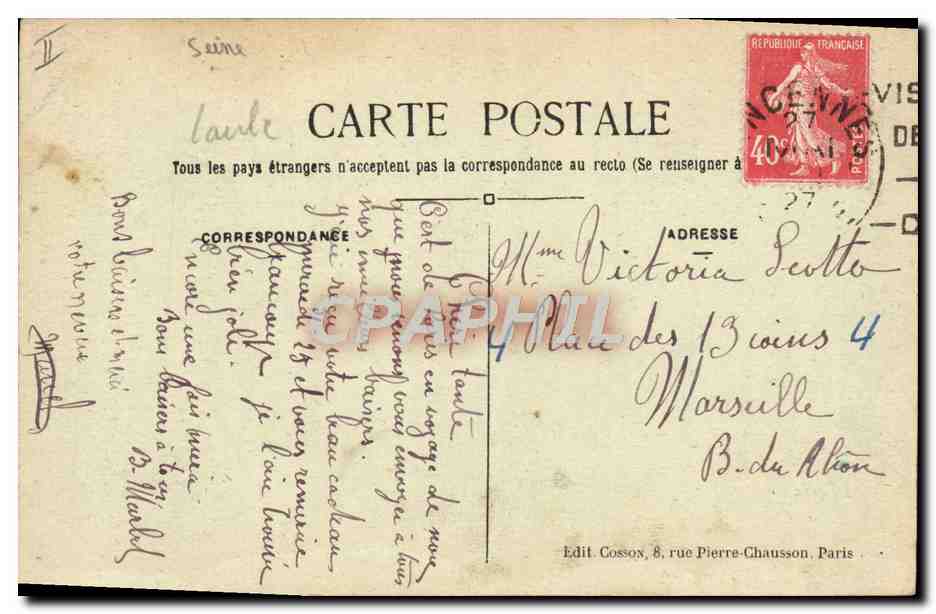 II
Seine
CARTE POSTALE
Tous les pays étrangers n'acceptent pas la correspondance au recto (Se renseigner à
REPUBLIQUE FRANÇAISE
40c
POSTES
NCENNES
27
27
VIS
DE
CORRESPONDANCE
ADRESSE
Chère tante
C'est de Paris en voyage de noce
que nous venons vous envoyer à tous
nos meilleurs baisers.
j'ai reçu votre beau cadeau
mercredi 25 et vous remercie
beaucoup je l'ai trouvé
bien joli.
Encore une fois merci
Bons baisers à tous
B. Marcel
Bons baisers et merci
votre neveu
Marcel
Mme Victoria Scotto
4 Place des 13 coins 4
Marseille
B. du Rhône
CPAPHIL
Edit. Cosson, 8, rue Pierre-Chausson, Paris